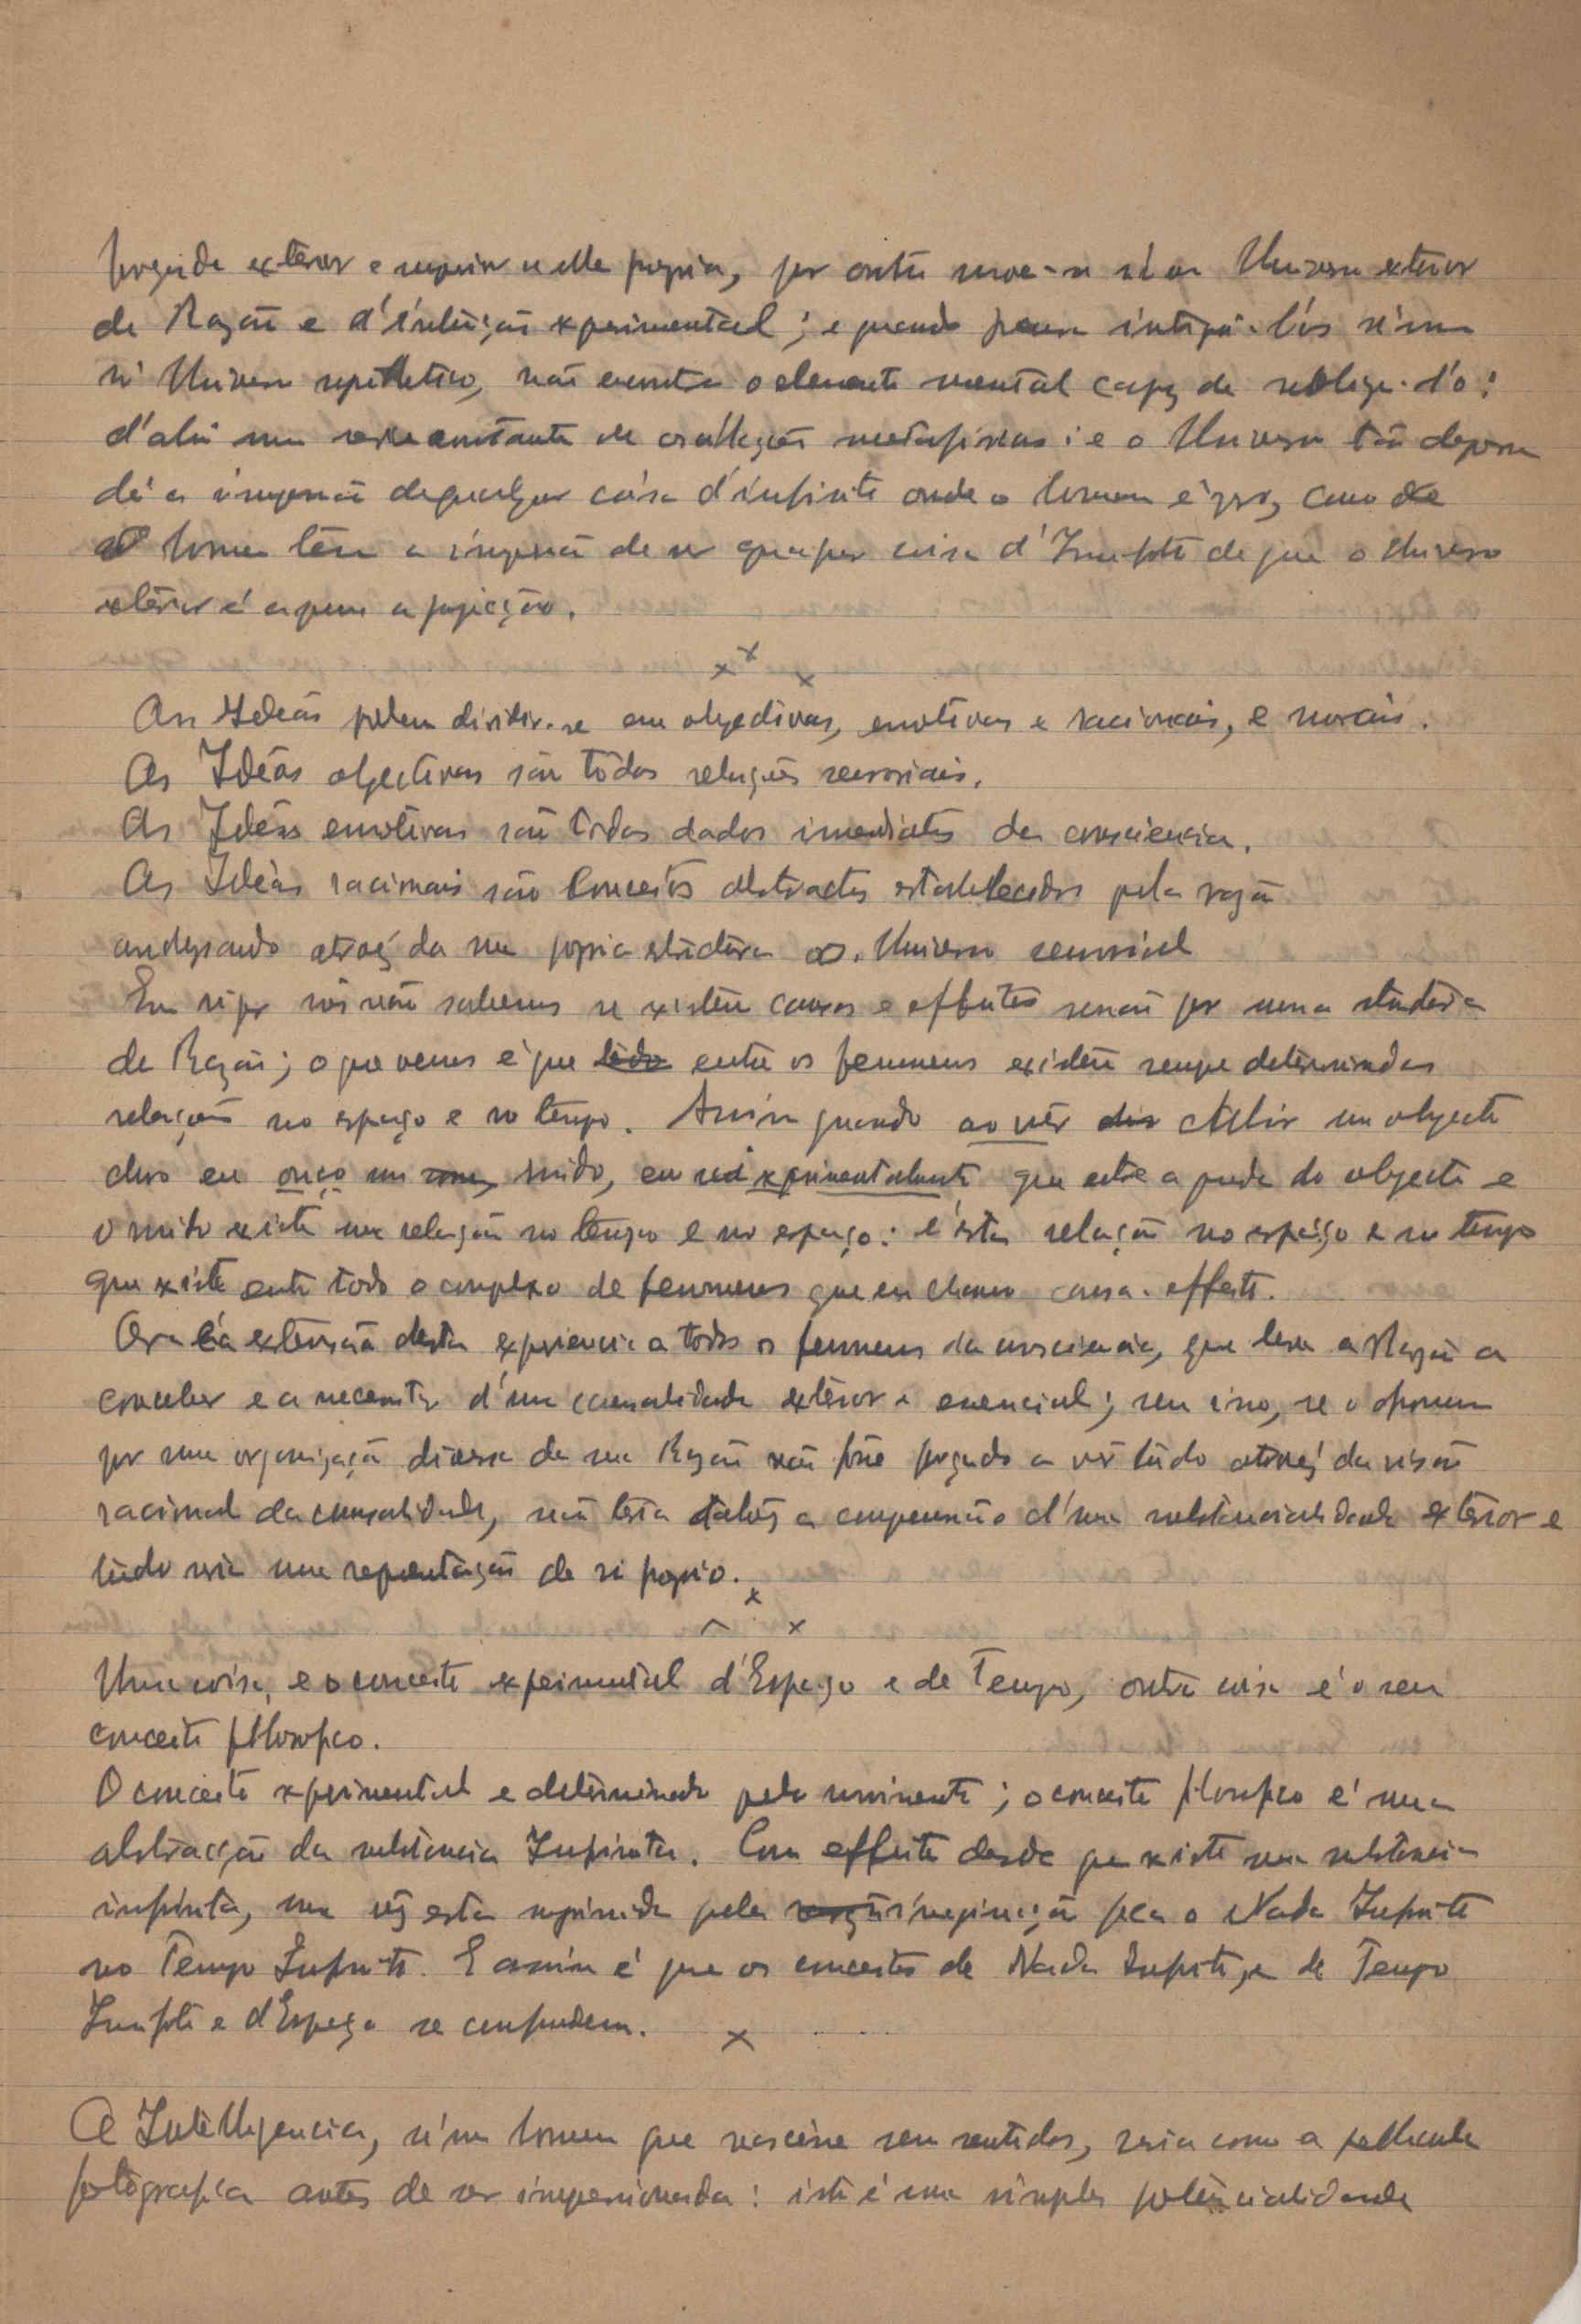 exterior e superior a elle propria, por outro move-se n'um Universo exterior
de Razão e d'intuição experimental; e quando procura integrá-los n'um
só Universo synthetico, não encontra o elemento mental capaz de
d'ahi uma serie constante de oscillações metafisicas: e o Universo
dá a impressão de qualquer coisa d'infinito onde o homem é, como
o homem tem a impressão de ser qualquer coisa d'Infinito de que o Universo
exterior é apenas a projecção.
x x x
As Ideas podem dividir-se em objectivas, emotivas e racionais, e morais.
As Ideas objectivas são todas relações sensoriais.
As Ideas emotivas são todas dados imediatos da consciencia.
As Ideas racionais são Conceitos abstractos estabelecidos pela razão
analysando atravez da sua propria estructura o Universo sensivel
Em rigor nós não sabemos se existem causas e effeitos senão por uma structura
de Razão; o que vemos é que tudo entre os fenomenos existem sempre determinadas
relações no espaço e no tempo. Assim quando ao vêr cahir um objecto
duro eu ouço um ruido, eu sei experimentalmente que entre a queda do objecto e
o ruido existe uma relação no tempo e no espaço: é esta relação no espaço e no tempo
que existe entre todo o complexo de fenomenos que eu chamo causa-effeito.
Ora é a extensão desta experiencia a todos os fenomenos da consciencia, que leva a Razão a
conceber e a necessitar d'uma causalidade exterior e essencial; sem isso, se o homem
por uma organização diversa da sua Razão não fosse forçado a vêr tudo atravez da visão
racional da causalidade, não teria talvez a compreensão d'uma substancialidade exterior e
tudo seria uma representação de si proprio.
x x
Uma coisa, é o conceito experimental d'Espaço e de Tempo, outra coisa é o seu
conceito filosofico.
O conceito experimental é determinado pelo movimento; o conceito filosofico é uma
abstracção da substancia Infinita. Com effeito desde que existe uma substancia
infinita, uma vez esta suprimida pela imaginação fica o Nada Infinito
no Tempo Infinito. E assim é que os conceitos de Nada Infinito, e de Tempo
Infinito e d'Espaço se confundem.
x
A Intelligencia, n'um homem que nascesse sem sentidos, seria como a pellicula
fotografica antes de ser impressionada: isto é uma simples potencialidade